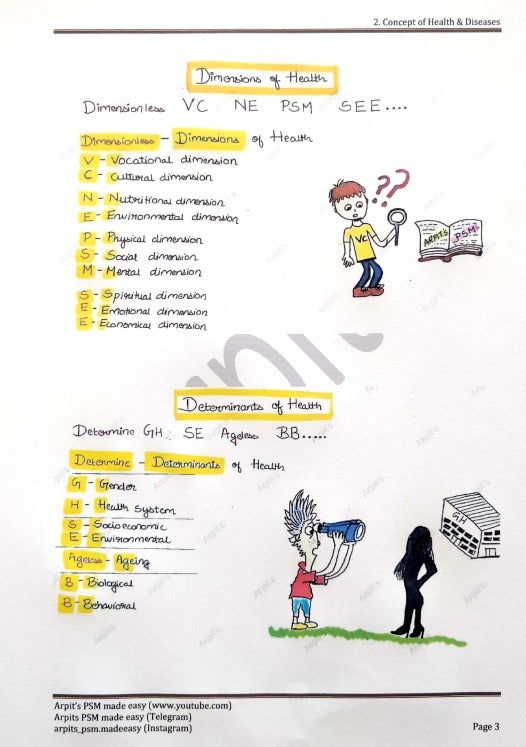 2. Concept of Health & Diseases
Dimensions of Health
Dimensionless VC NE PSM SEE....
Dimensionless - Dimensions of Health
V - Vocational dimension
C - Cultural dimension
N - Nutritional dimension
E - Environmental dimension
P - Physical dimension
S - Social dimension
M - Mental dimension
S - Spiritual dimension
E - Emotional dimension
E - Economical dimension
??
VC
ARPITS PSM
Arpit's
Determinants of Health
Determine GH SE Ageless BB.....
Determine - Determinants of Health
G - Gender
H - Health System
S - Socioeconomic
E - Environmental
Ageless - Ageing
B - Biological
B - Behavioral
GH
Arpit's PSM made easy (www.youtube.com)
Arpits PSM made easy (Telegram)
arpits_psm.madeeasy (Instagram)
Page 3